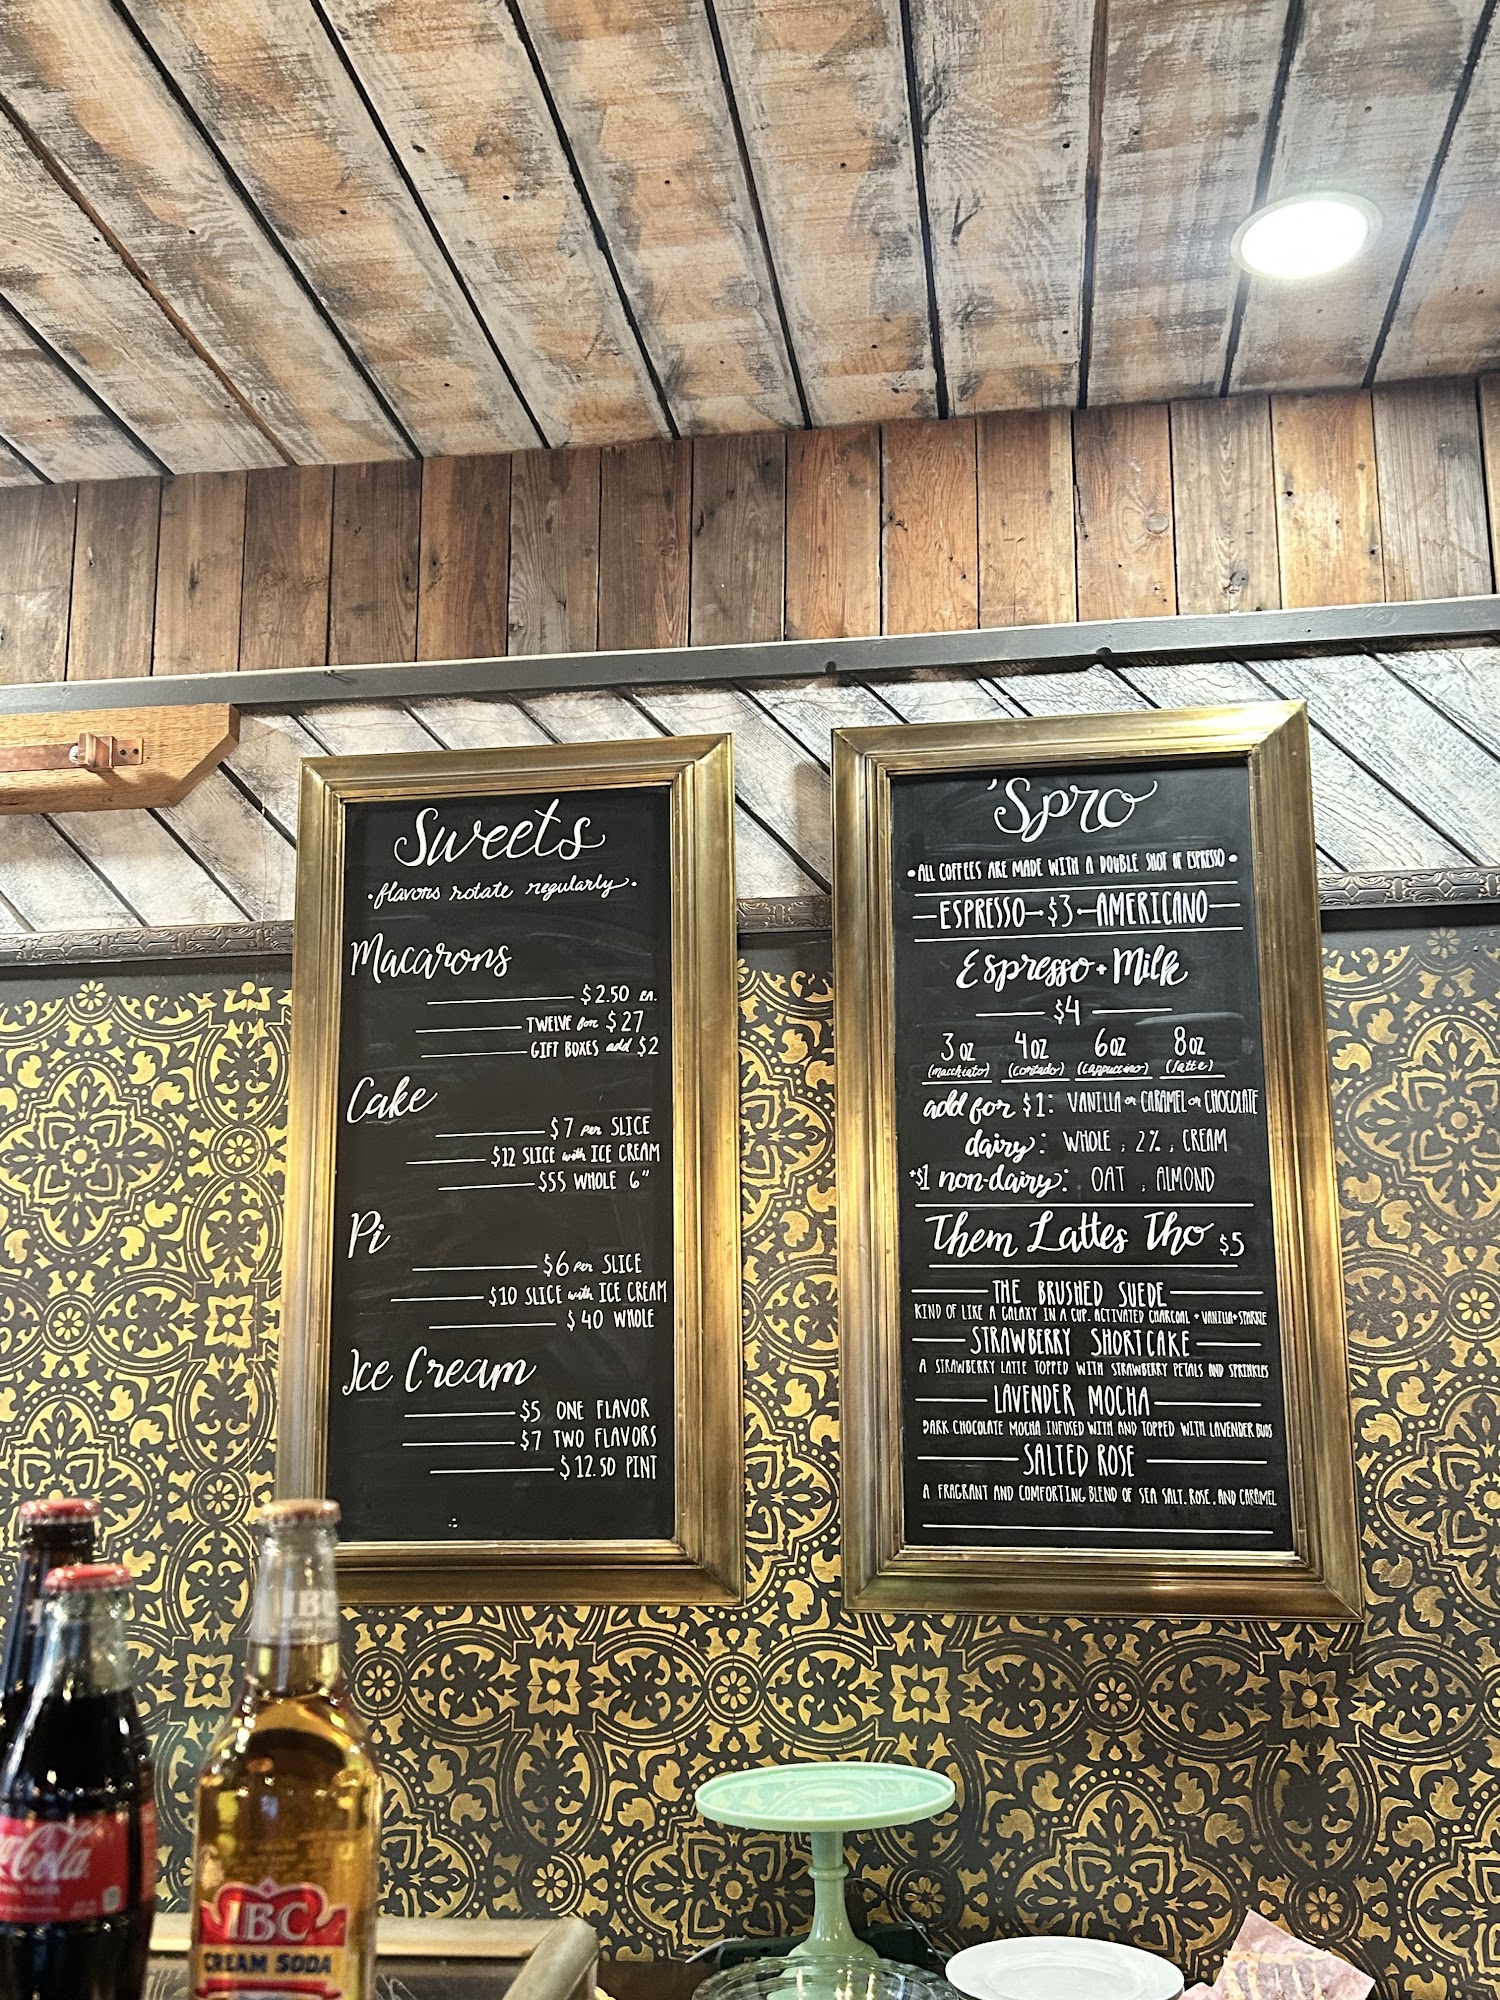 Sweets
•flavors rotate regularly•
Macarons
$2.50 EA.
TWELVE for $27
GIFT BOXES add $2
Cake
$7 per SLICE
$12 SLICE with ICE CREAM
$55 WHOLE 6"
Pi
$6 per SLICE
$10 SLICE with ICE CREAM
$40 WHOLE
Ice Cream
$5 ONE FLAVOR
$7 TWO FLAVORS
$12.50 PINT
'Spro
•ALL COFFEES ARE MADE WITH A DOUBLE SHOT OF ESPRESSO•
ESPRESSO-$3-AMERICANO
Espresso + Milk
$4
3 oz 4oz 6oz 8oz
(macchiato) (cortado) (cappuccino) (latte)
add for $1: VANILLA or CARAMEL or CHOCOLATE
dairy: WHOLE, 2%, CREAM
+$1 non-dairy: OAT, ALMOND
Them Lattes Tho $5
THE BRUSHED SUEDE
KIND OF LIKE A GALAXY IN A CUP. ACTIVATED CHARCOAL + VANILLA + SPARKLE
STRAWBERRY SHORTCAKE
A STRAWBERRY LATTE TOPPED WITH STRAWBERRY PETALS AND SPRINKLES
LAVENDER MOCHA
DARK CHOCOLATE MOCHA INFUSED WITH AND TOPPED WITH LAVENDER BUDS
SALTED ROSE
A FRAGRANT AND COMFORTING BLEND OF SEA SALT, ROSE, AND CARAMEL
IBC
Coca-Cola
IBC
CREAM SODA